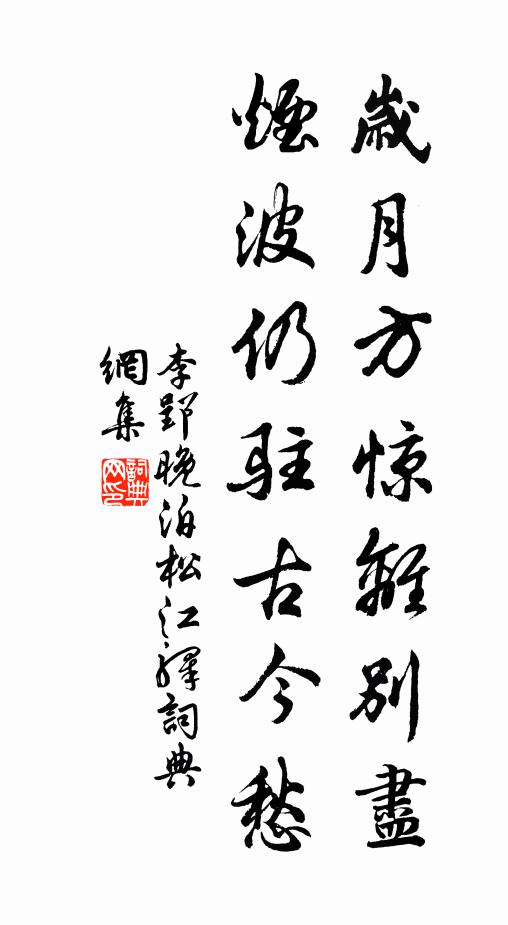 歲月方惊離別盡
煙波仍駐古今愁
李郢晚泊松江驛詞典
網集
詞典網印